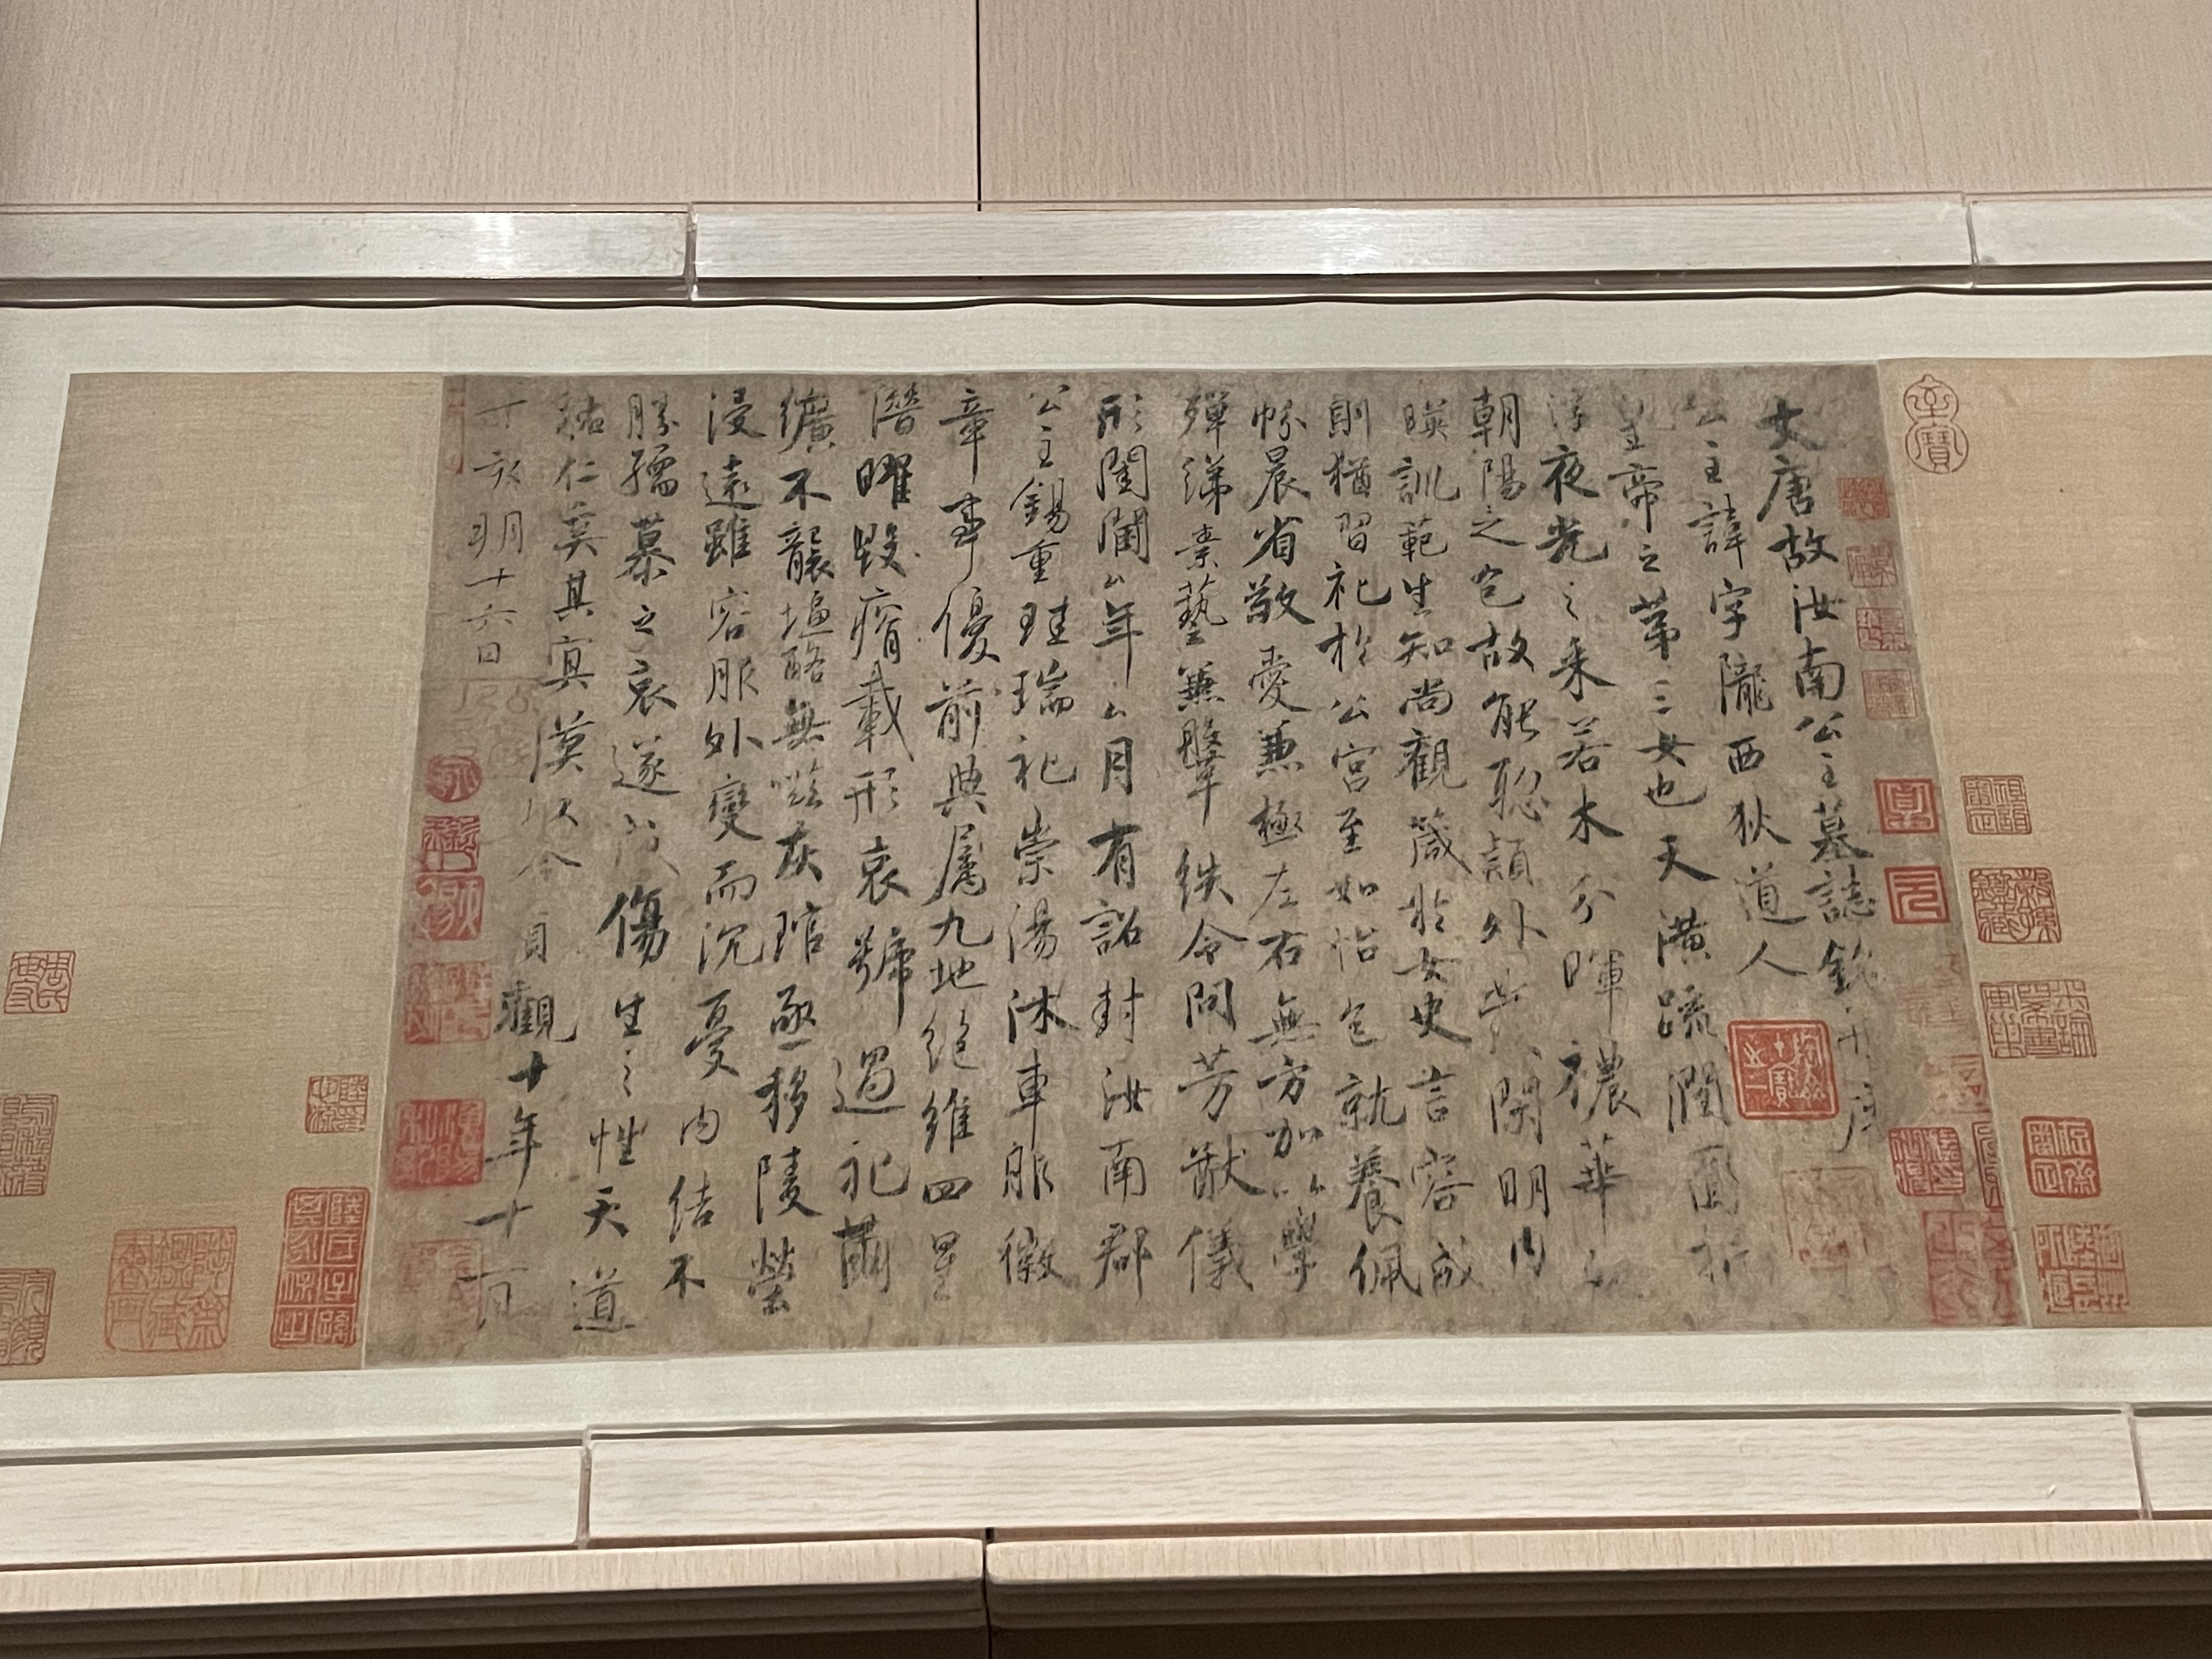 大唐故汝南公主墓誌銘并序
公主諱字隴西狄道人
皇帝之第三女也天潢疏潤圓折
浮夜光之采若木分暉穠華
朝陽之色故能聰穎外發閑明內
暎訓範生知尚觀箴於女史言容成
則猶習祀於公宮至如怡色就養佩
帉晨省敬愛兼極左右無方加以學
殫綈素藝兼鞶紩令問芳猷儀
形閨閫厶年厶月有詔封汝南郡
公主錫重珪瑞祀崇湯沐車服徽
章事優前典屬九地絕維四星
潛曜毀瘠載形哀號過祀繭
纊不襲塩酪無嗞灰琯亟移陵塋
浸遠雖容服外變而沉憂內結不
勝孺慕之哀遂成傷生之性天道
祐仁奚其冥漠以今貞觀十年十一月
丁亥朔十六日